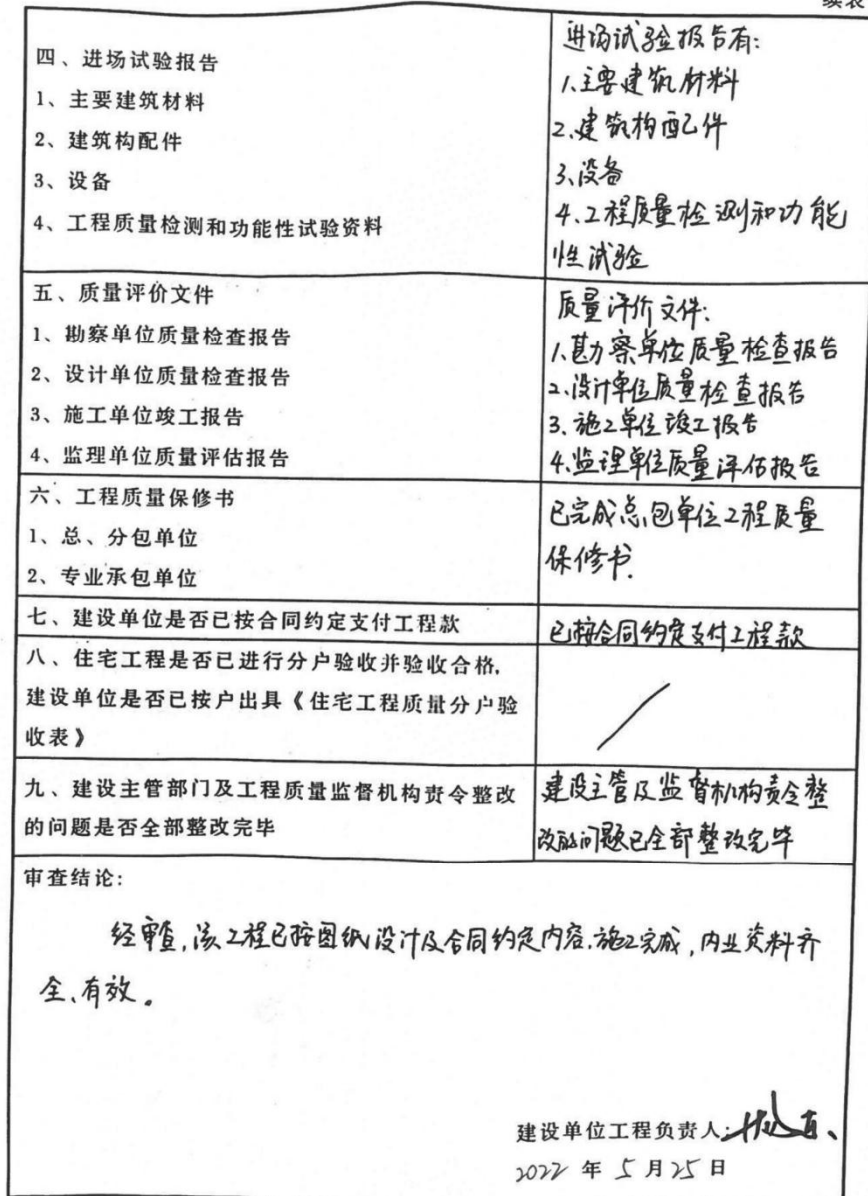 续表
四、进场试验报告
1、主要建筑材料
2、建筑构配件
3、设备
4、工程质量检测和功能性试验资料
进场试验报告有:
1、主要建筑材料
2、建筑构配件
3、设备
4、工程质量检测和功能
性试验
五、质量评价文件
1、勘察单位质量检查报告
2、设计单位质量检查报告
3、施工单位竣工报告
4、监理单位质量评估报告
质量评价文件:
1、勘察单位质量检查报告
2、设计单位质量检查报告
3、施工单位竣工报告
4、监理单位质量评估报告
六、工程质量保修书
1、总、分包单位
2、专业承包单位
已完成总包单位工程质量
保修书.
七、建设单位是否已按合同约定支付工程款
已按合同约定支付工程款
八、住宅工程是否已进行分户验收并验收合格,
建设单位是否已按户出具《住宅工程质量分户验
收表》
九、建设主管部门及工程质量监督机构责令整改
的问题是否全部整改完毕
建设主管及监督机构责令整
改的问题已全部整改完毕
审查结论:
经审查,该工程已按图纸设计及合同约定内容.施工完成,内业资料齐
全、有效。
建设单位工程负责人:
2022 年 5 月 25 日